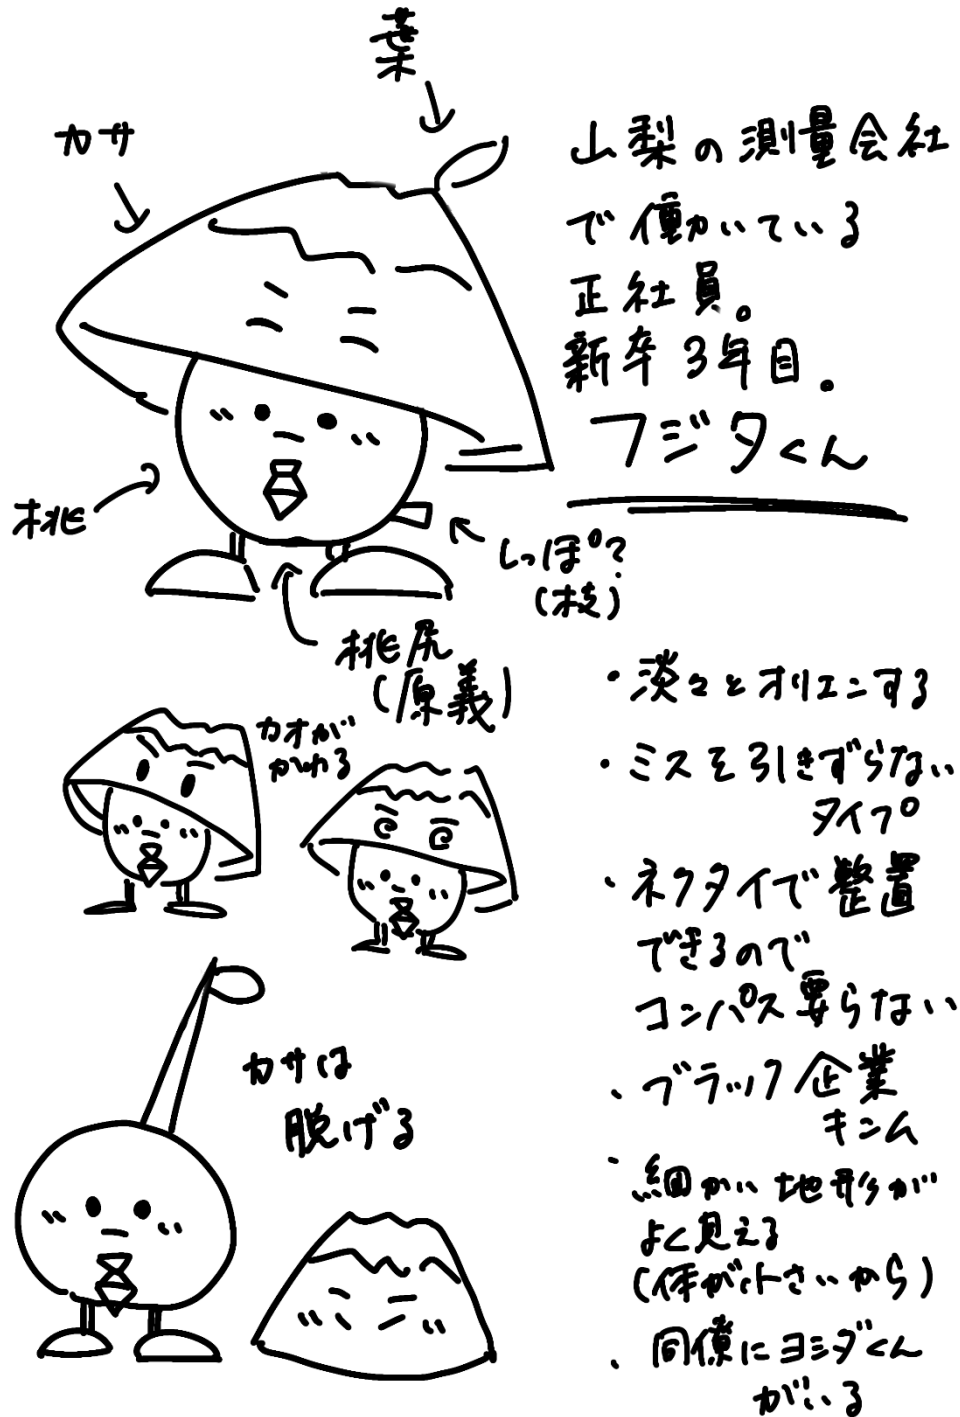 葉
カサ
山梨の測量会社
で働いている
正社員。
新卒3年目。
フジタくん
桃
しっぽ?
(枝)
桃尻
(原義)
カオが
かわる
・淡々とオリエンする
・ミスを引きずらない
タイプ
・ネクタイで整置
できるので
コンパス要らない
カサは
脱げる
・ブラック企業
キンム
・細かい地形が
よく見える
(体が小さいから)
・同僚にヨシダくん
がいる